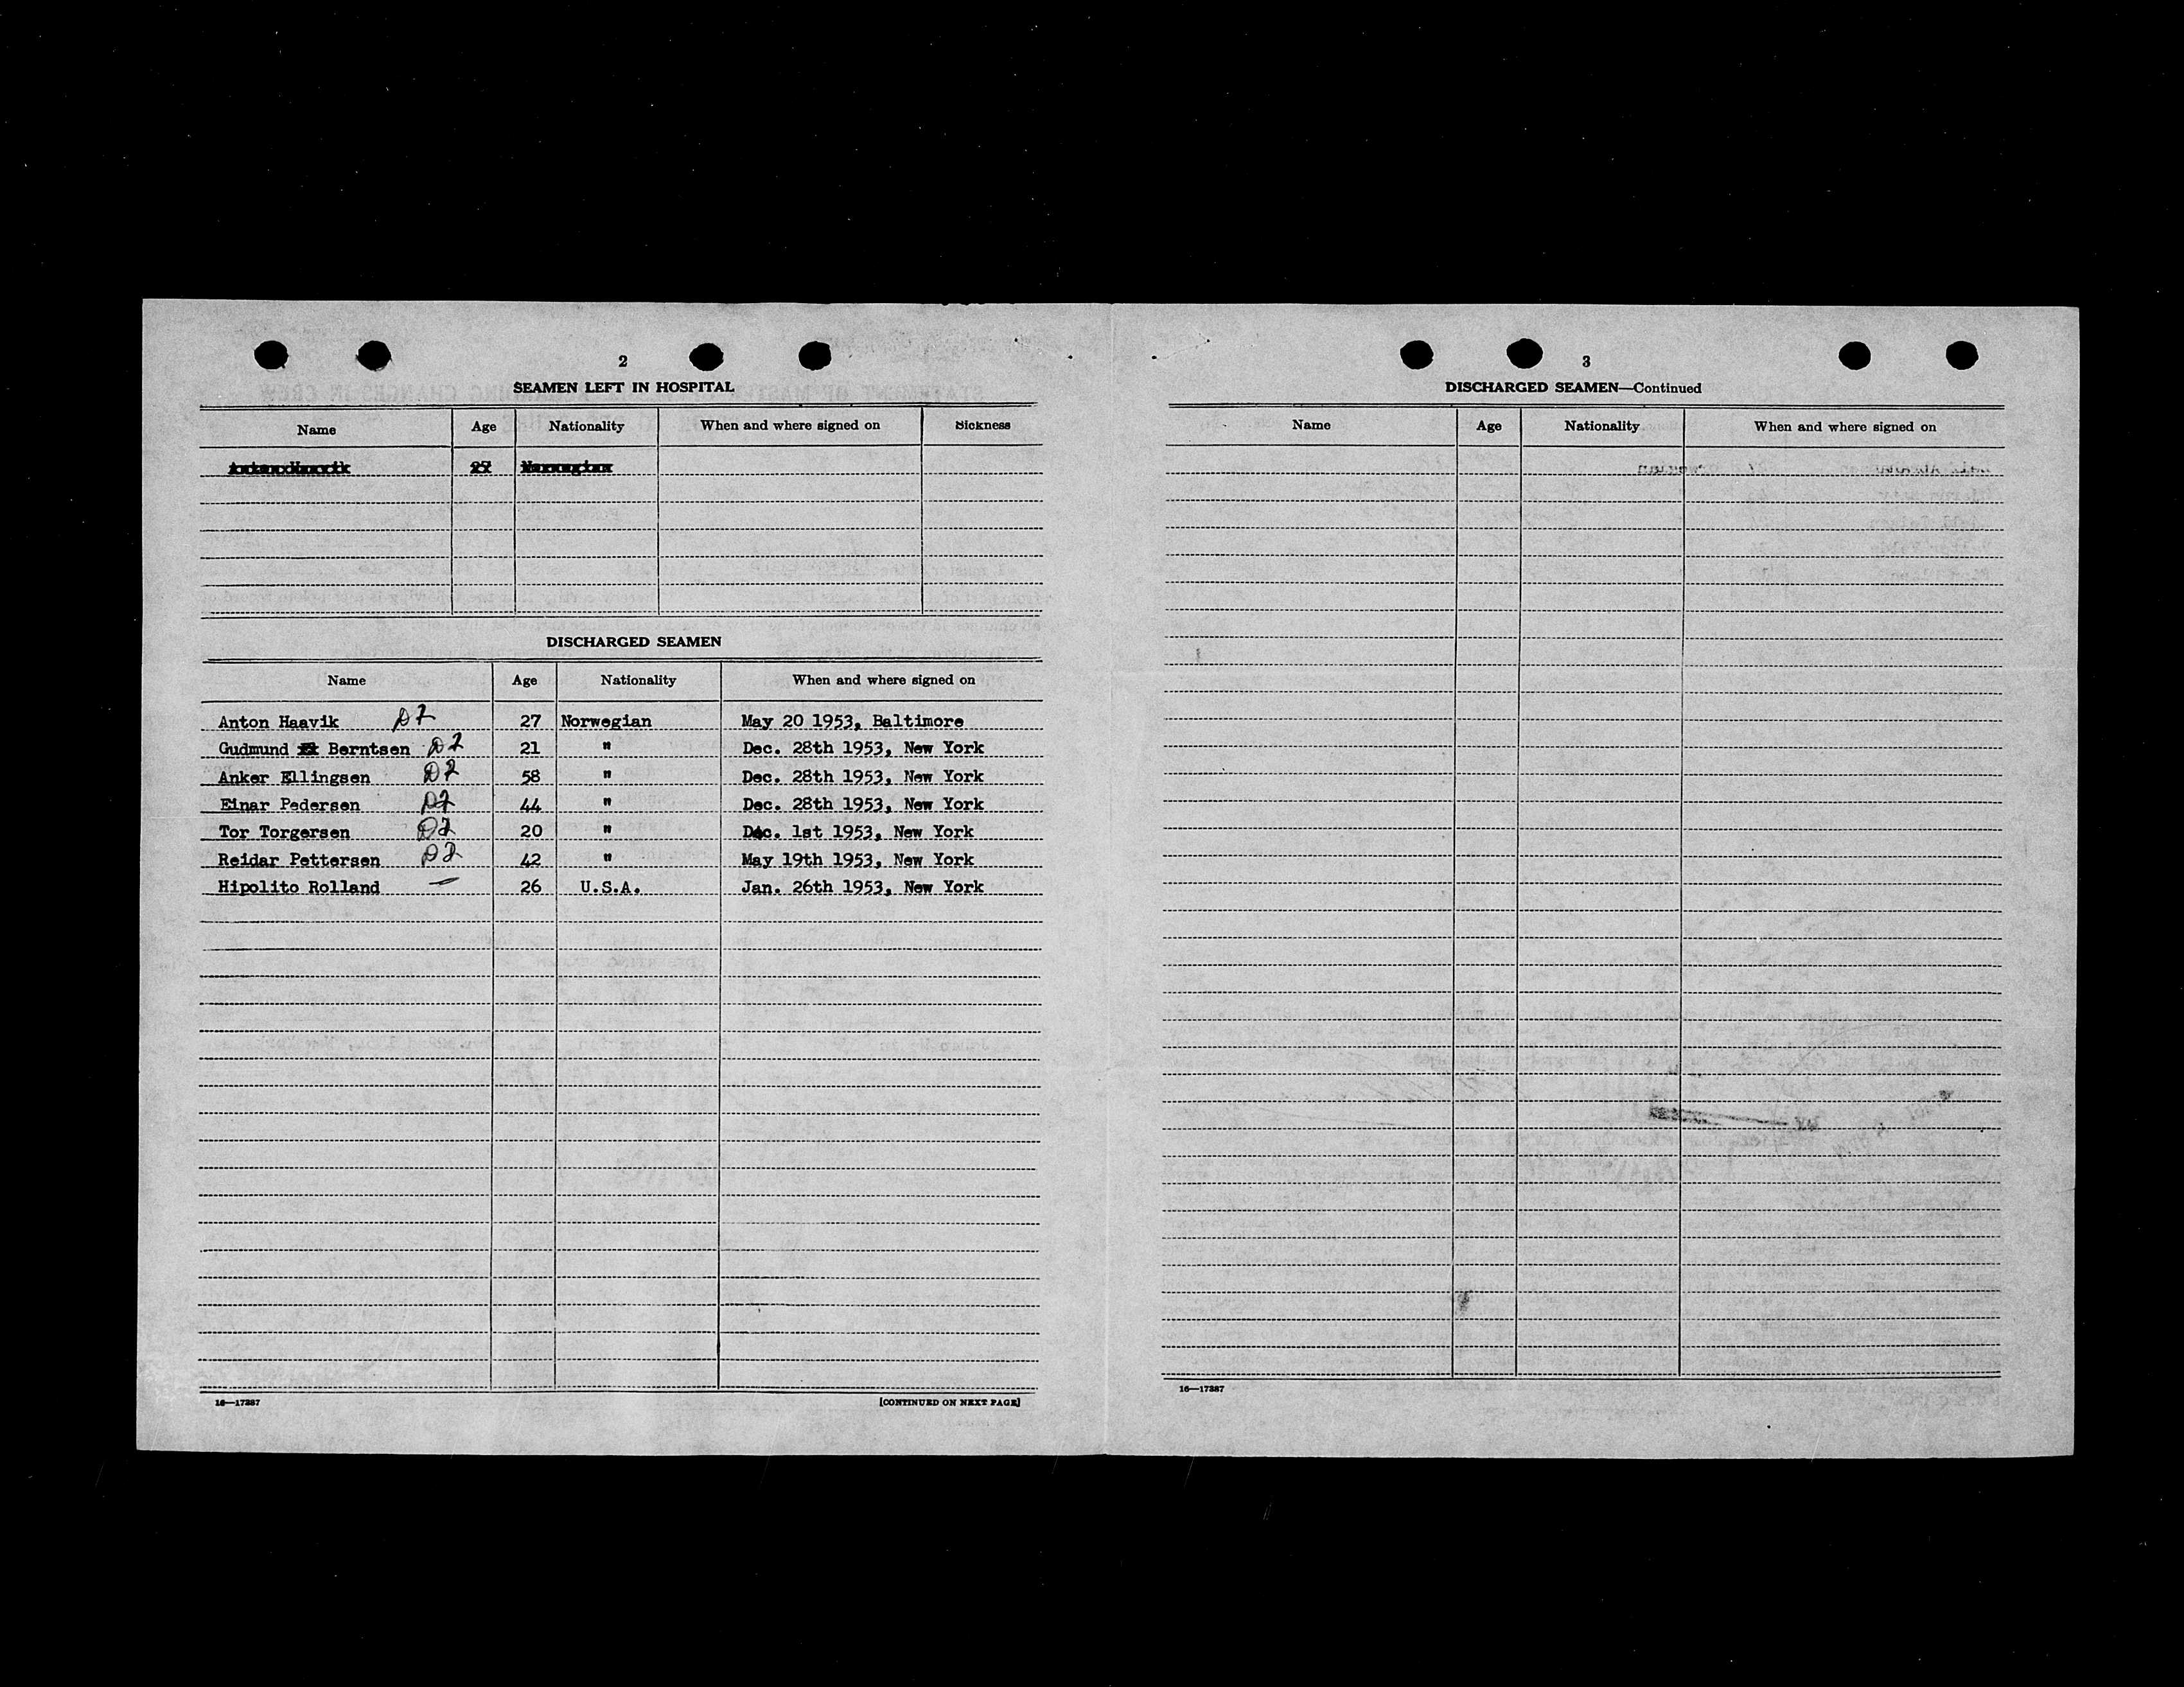 2
SEAMEN LEFT IN HOSPITAL
Name Age Nationality When and where signed on Sickness
Anton Haavik 27 Norwegian
DISCHARGED SEAMEN
Name Age Nationality When and where signed on
Anton Haavik D2 27 Norwegian May 20 1953, Baltimore
Gudmund Berntsen D2 21 " Dec. 28th 1953, New York
Anker Ellingsen D2 58 " Dec. 28th 1953, New York
Einar Pedersen D2 44 " Dec. 28th 1953, New York
Tor Torgersen D2 20 " Dec. 1st 1953, New York
Reidar Pettersen D2 42 " May 19th 1953, New York
Hipolito Rolland — 26 U.S.A. Jan. 26th 1953, New York
16—17387 [CONTINUED ON NEXT PAGE]
3
DISCHARGED SEAMEN—Continued
Name Age Nationality When and where signed on
16—17387